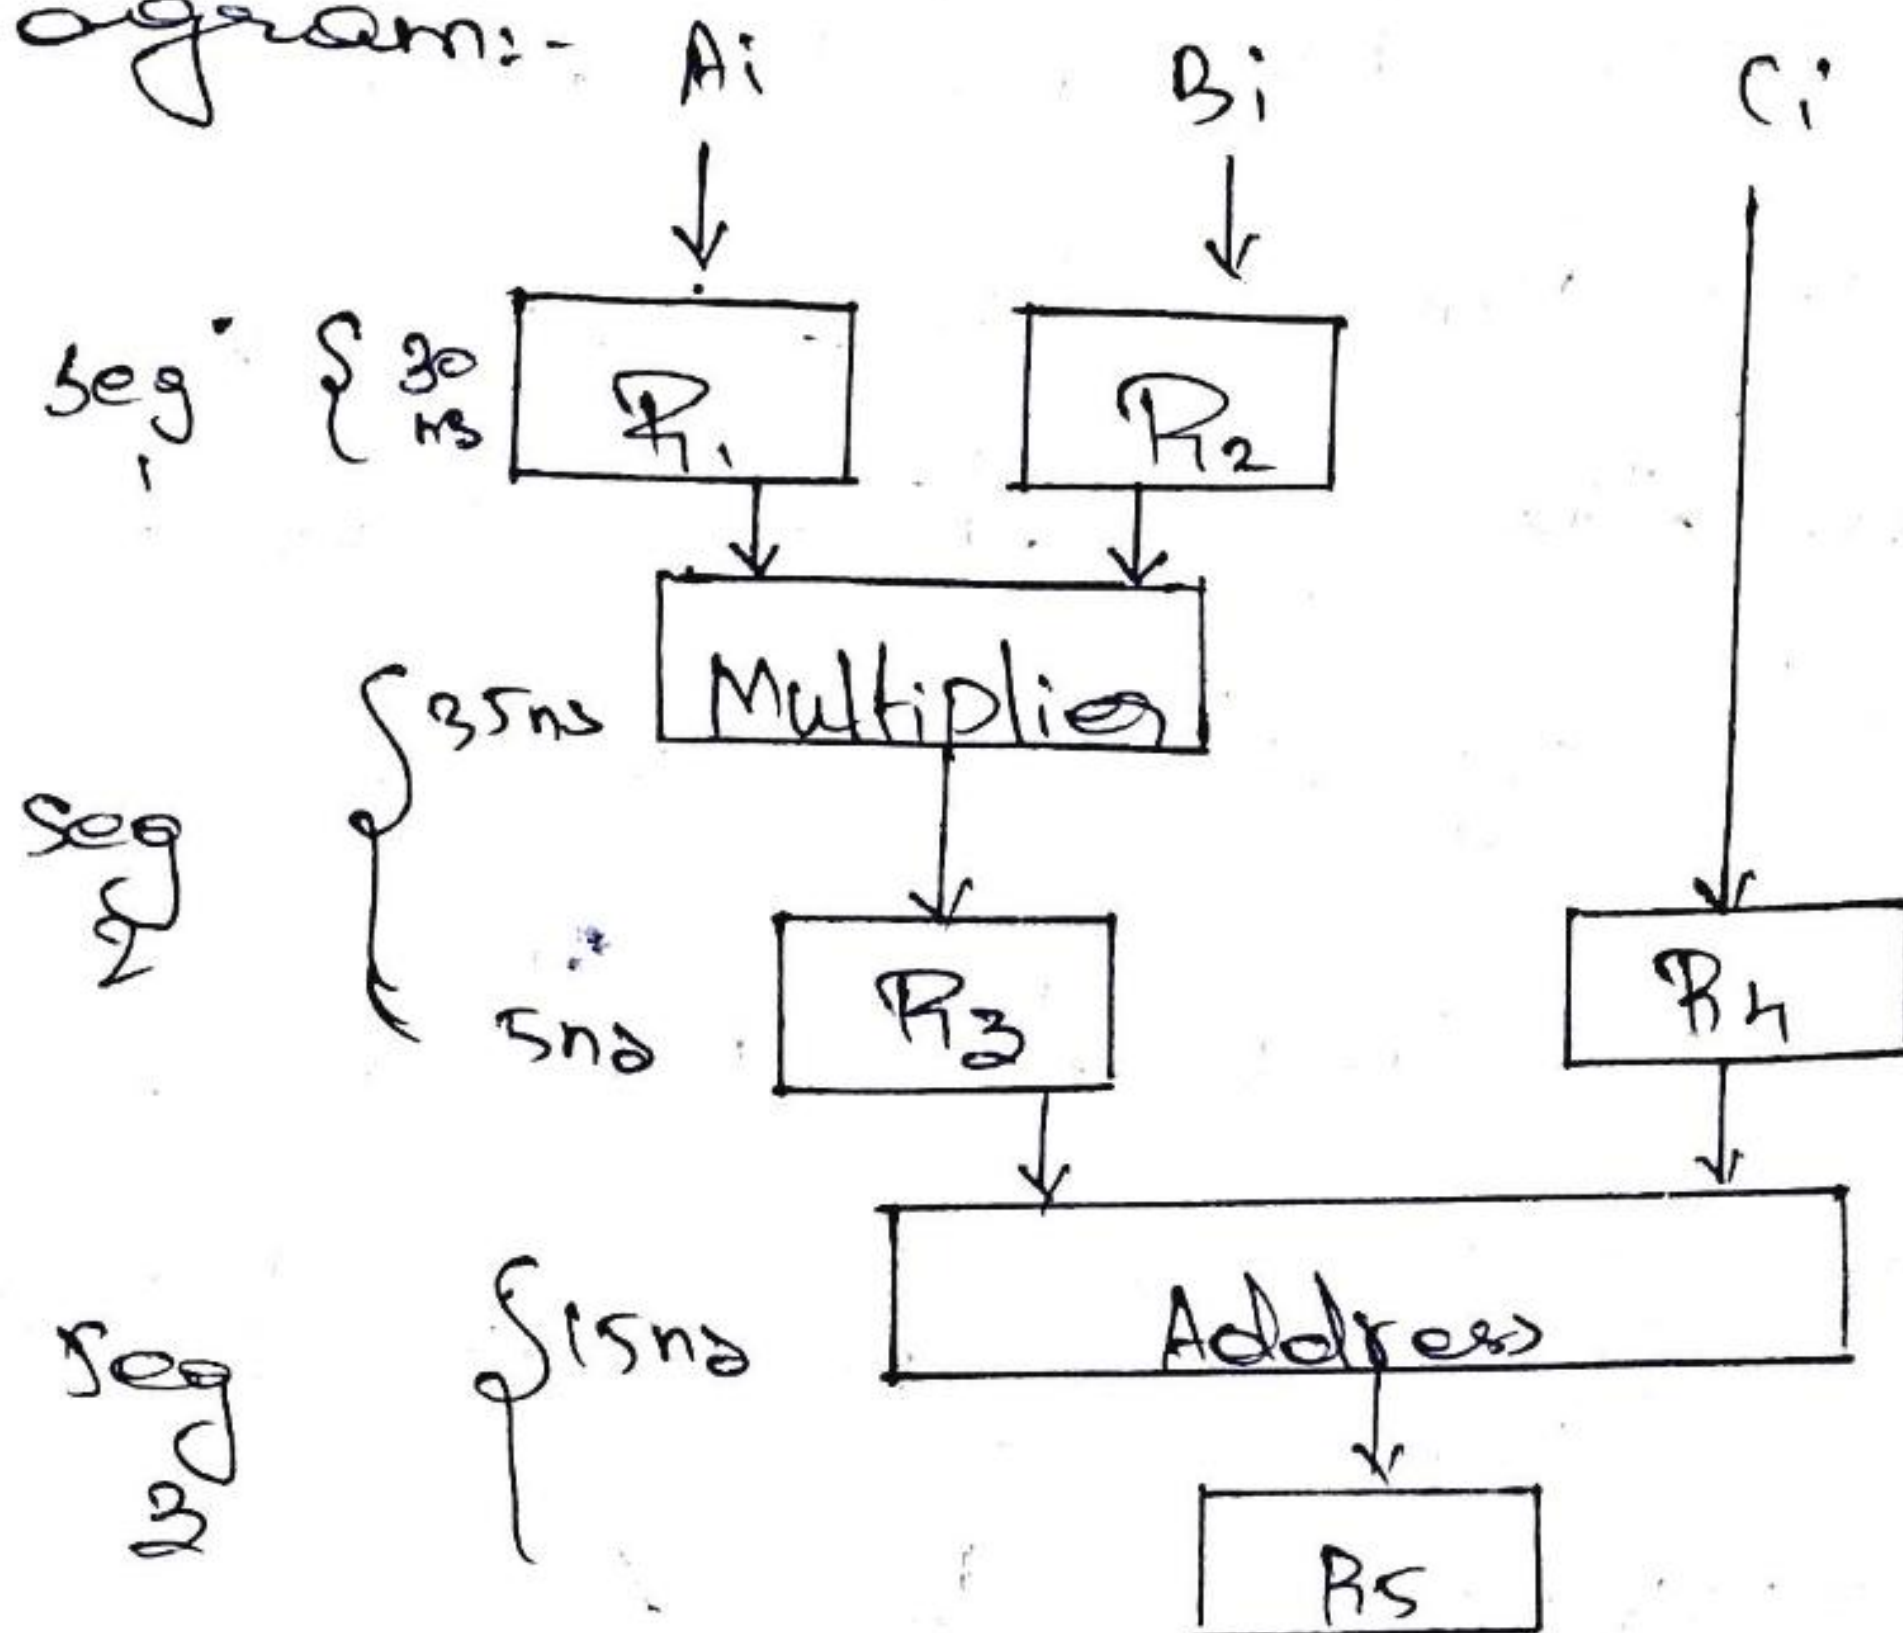 ogram:-
Ai Bi Ci
Seg 1 { 30 ns R1 R2
35ns Multiplier
Seg 2
5ns R3 R4
Seg 3 15ns Address
R5